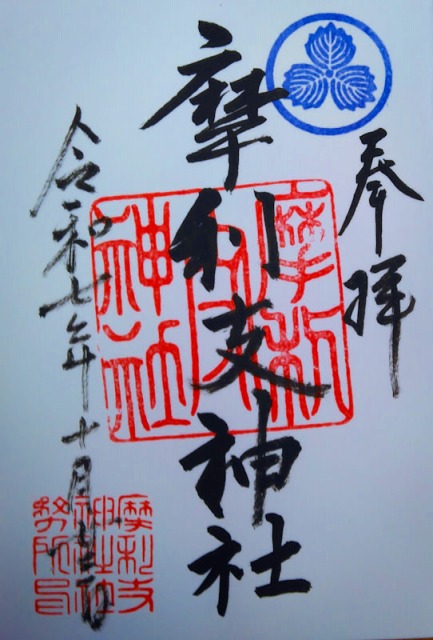 奉拝
摩利支神社
令和七年十月吉日
摩利支神社
摩利支神社務所印